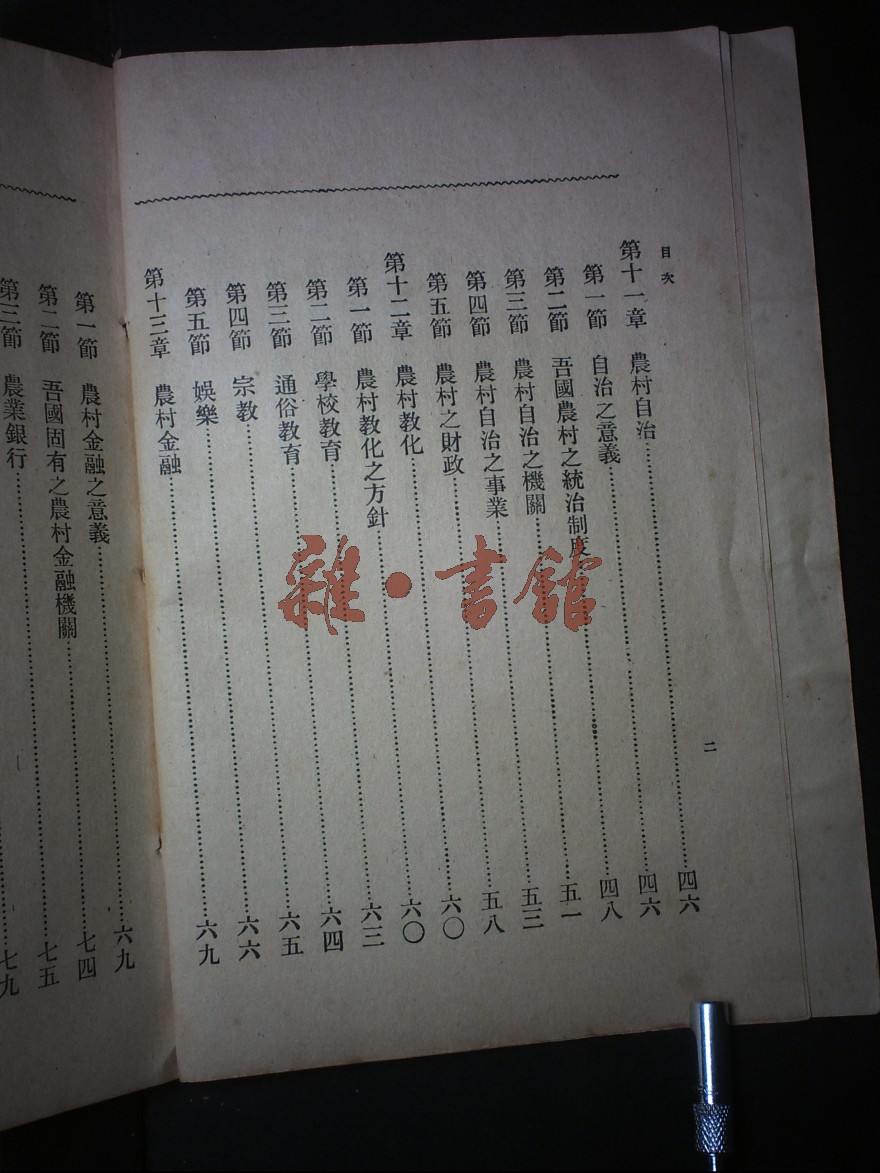 目次
二
第十一章 農村自治……四六
第一節 自治之意義……四六
第二節 吾國農村之統治制度……四八
第三節 農村自治之機關……五一
第四節 農村自治之事業……五三
第五節 農村之財政……五八
第十二章 農村教化……六〇
第一節 農村教化之方針……六〇
第二節 學校教育……六三
第三節 通俗教育……六四
第四節 宗教……六五
第五節 娛樂……六六
第十三章 農村金融……六九
第一節 農村金融之意義……六九
第二節 吾國固有之農村金融機關……七四
第三節 農業銀行……七五
七九
雜·書館